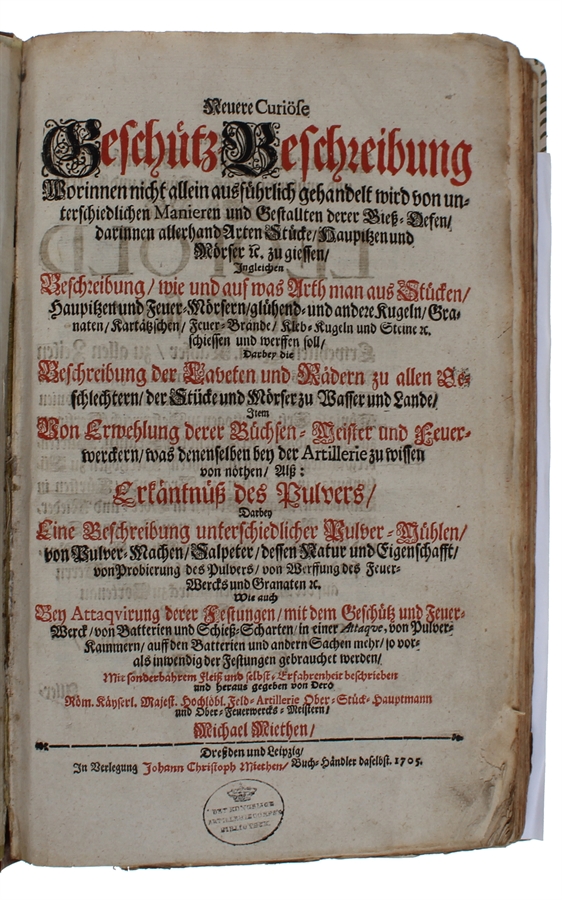 Neuere Curiöse
Geschütz-Beschreibung
Worinnen nicht allein ausführlich gehandelt wird von un-
terschiedlichen Manieren und Gestallten derer Gieß-Oefen/
darinnen allerhand Arten Stücke/ Haupitzen und
Mörser ꝛc. zu giessen/
Ingleichen
Beschreibung/ wie und auf was Arth man aus Stücken/
Haupitzen und Feuer-Mörsern/ glühend- und andere Kugeln/ Gra-
naten/ Kartätzschen/ Feuer-Brände/ Kleb-Kugeln und Steine ꝛc.
schiessen und werffen soll/
Darbey die
Beschreibung der Laveten und Rädern zu allen Ge-
schlechtern/ der Stücke und Mörser zu Wasser und Lande/
Item
Von Erwehlung derer Büchsen-Meister und Feuer-
werckern/ was denenselben bey der Artillerie zu wissen
von nöthen/ Alß:
Erkäntnüß des Pulvers/
Darbey
Eine Beschreibung unterschiedlicher Pulver-Mühlen/
von Pulver-Machen/ Salpeter/ dessen Natur und Eigenschafft/
von Probierung des Pulvers/ von Werffung des Feuer-
Wercks und Granaten ꝛc.
Wie auch
Bey Attaqvirung derer Festungen/ mit dem Geschütz und Feuer-
Werck/ von Batterien und Schieß-Scharten/ in einer Attaqve, von Pulver-
Kammern/ auff den Batterien und andern Sachen mehr/ so vor-
als inwendig der Festungen gebrauchet werden/
Mit sonderbahrem Fleiß und selbst-Erfahrenheit beschrieben
und heraus gegeben von Dero
Röm. Käyserl. Majest. Hochlöbl. Feld-Artillerie Ober-Stück-Hauptmann
und Ober-Feuerwercks-Meistern/
Michael Miethen/
Dreßden und Leipzig/
In Verlegung Johann Christoph Miethen/ Buch-Händler daselbst. 1705.
DET KONGELIGE